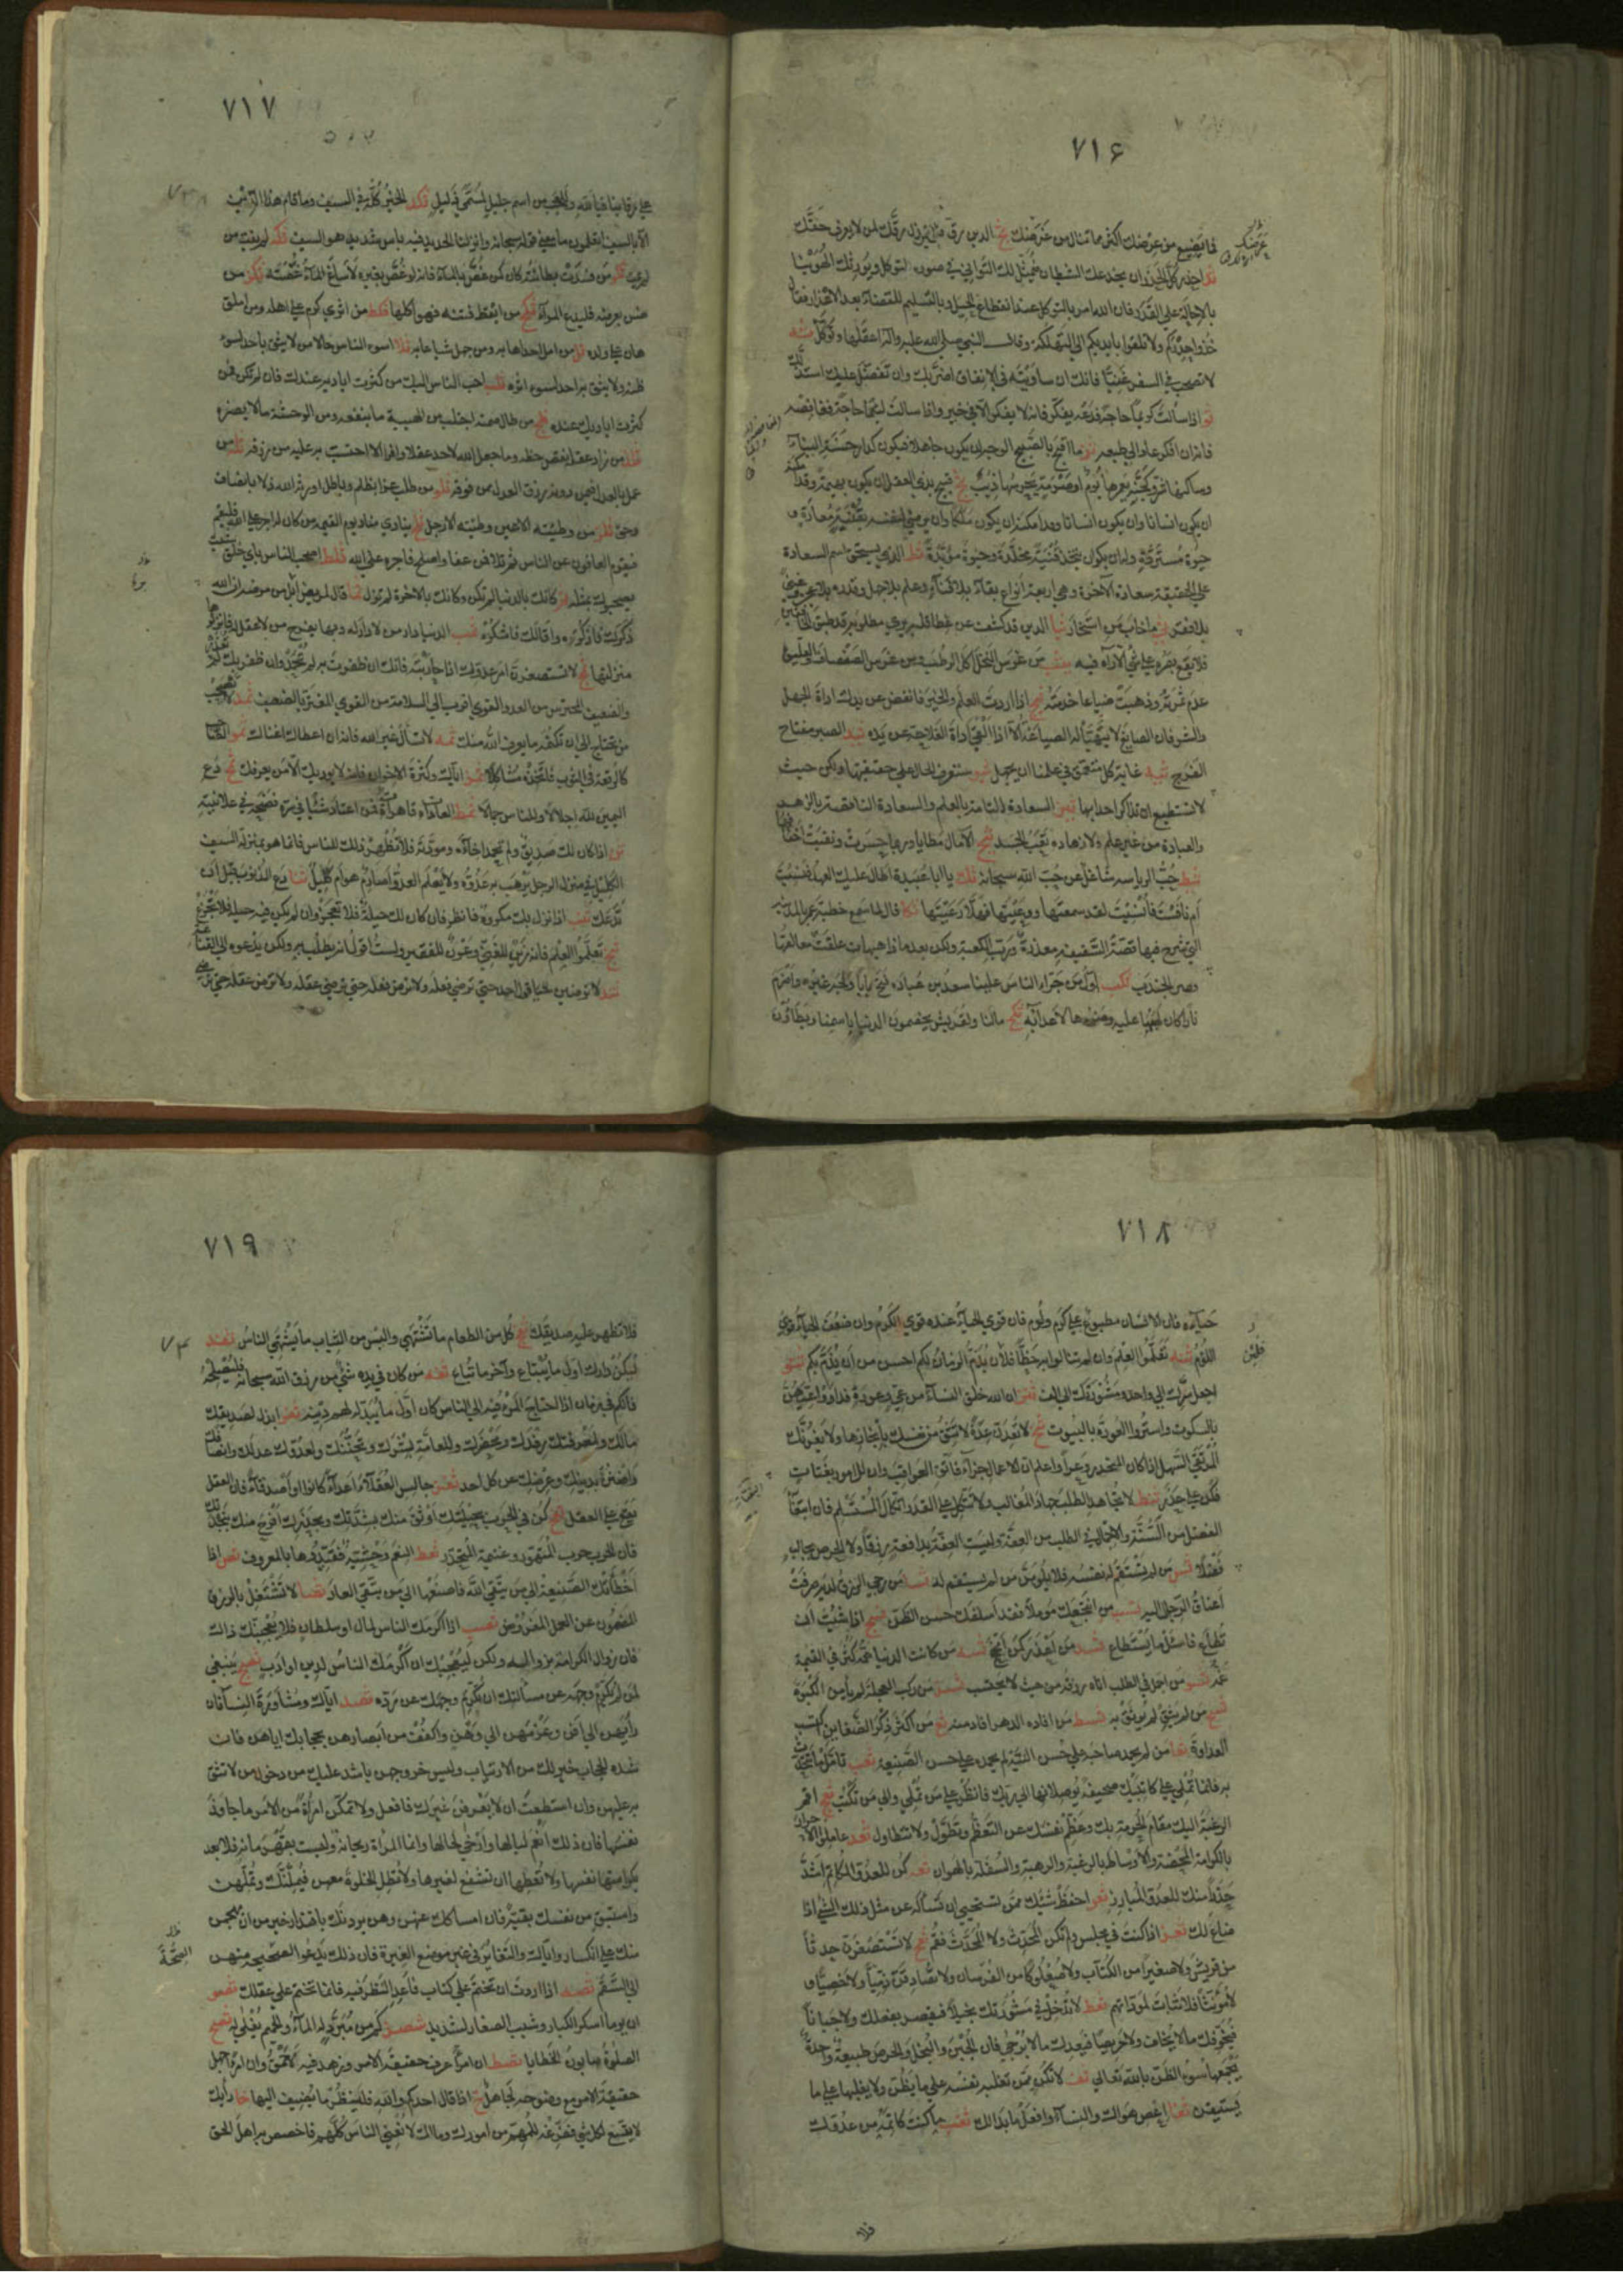 ٧١۶
فما يضيع من عرضك اكثر مما تنال من غرضك نج الدين رق فلا تبذل رقك لمن لا يعرف حقك
ند احذر كل الحذر ان يخدعك الشيطان فيمثل لك التواني في صورة التوكل ويورثك الهوينا
بالاحالة على القدر فان الله امر بالتوكل عند انقطاع الحيل وبالتسليم للقضاء بعد الاعذار فقال
خذوا حذركم ولا تلقوا بايديكم الى التهلكة وقال النبي صلى الله عليه واله اعقلها وتوكل نه
لا تصحب في السفر غنيا فانك ان ساويته في الانفاق اضر بك وان تفضل عليك استذلك
نو اذا سألت كريما حاجة فدعه يفكر فانه لا يفكر الا في خير واذا سألت لئيما حاجة فغافصه
فانه ان فكر عاد الى طبعه نز ما اقبح بالصبيح الوجه ان يكون جاهلا فيكون كدار حسنة البناء
وساكنها شر وكجنة يعمرها بوم او صرمة يحرسها ذئب نح قبيح بذي العقل ان يكون بهيمة وقد امكنه
ان يكون انسانا وان يكون انسانا وقد امكنه ان يكون ملكا وان يرضى لنفسه بقنية معارة و
حيوة مستردة وله ان يكون يتخذ قنية مخلدة وحيوة مؤبدة نط الذي يستحق اسم السعادة
على الحقيقة سعادة الآخرة وهي اربعة انواع بقاء بلا فناء وعلم بلا جهل وقدرة بلا عجز وغنى
بلا فقر ما خاب من استخار الدين قد كشف عن غطاء قلبه يرى مطلوبه قد طبق الخافقين
فلا يقع بصره على شيء الا رآه فيه من غرس النخل اكل الرطب من غرس الصفصاف والعليق
عدم ثمرته وذهبت ضياعا خدمته اذا اردت العلم والخير فانفض عن يدك اداة الجهل
والشر فان الصايغ لا يتهيأ له الصياغة الا اذا القى اداة الفلاحة عن يده الصبر مفتاح
الفرج غاية كل متعمق في علمنا ان يجهل ستعرف الحال على حقيقتها ولكن حيث
لا تستطيع ان تذاكر احدا بها السعادة التامة بالعلم والسعادة الناقصة بالزهد
والعبادة من غير علم ولا زهادة تعب الجسد الآمال مطايا وربما حسرت ونقبت اخفافها
حب الرياسة شاغل عن حب الله سبحانه يا ابا عبيدة اطال عليك العهد فنسيت
ام نافست فأنسيت لقد سمعتها ووعيتها فهلا رعيتها قال لما سمع خطبة عمر بالمدينة
التي شرح فيها قصة السقيفة معذرة ورب الكعبة ولكن بعد ماذا هيهات علقت معالقها
وصر الجندب اول من جرأ الناس علينا سعد بن عبادة فتح بابا ولجه غيره واضرم
نارا كان لهبها عليه وضوءها لاعدائه ما لنا ولقريش يخضمون الدنيا باسمنا ويطأون
٧١٧
على رقابنا فيا لله وللعجب من اسم جليل لمسمى ذليل الخير كله في السيف وما قام هذا الدين
الا بالسيف اتعلمون ما معنى قوله سبحانه وانزلنا الحديد فيه بأس شديد هو السيف لم يفت من
لم يمت من فسدت بطانته كان كمن غص بالماء فانه لو غص بغيره لأساغ الماء غصته من
ضن بعرضه فليدع المراء من ايقظ فتنة فهو آكلها من اثرى كرم على اهله ومن املق
هان على ولده من امل احدا هابه ومن جهل شيئا عابه اسوء الناس حالا من لا يثق باحد لسوء
ظنه ولا يثق به احد لسوء اثره احب الناس اليك من كثرت اياديه عندك فان لم يكن فمن
كثرت اياديك عنده من طال صمته اجتلب من الهيبة ما ينفعه ومن الوحشة ما لا يضره
من زاد عقله نقص حظه وما جعل الله لاحد عقلا وافرا الا احتسب به عليه من رزقه من
عمل بالعدل فيمن دونه رزق العدل ممن فوقه من طلب عزا بظلم وباطل اورثه الله ذلا بانصاف
وحق من وطئته الاعين وطئته الارجل ينادي مناد يوم القيمة من كان له اجر على الله فليقم
فيقوم العافون عن الناس ثم تلا فمن عفا واصلح فاجره على الله اصحب الناس باي خلق شئت
يصحبوك بمثله كأنك بالدنيا لم تكن وكأنك بالآخرة لم تزل قال لمريض ابل من مرضه ان الله
ذكرك فاذكره واقالك فاشكره الدنيا دار من لا دار له وبها يفرح من لا عقل له فانزلوها
منزلتها لا تستصغرن امر عدوك اذا حاربته فانك ان ظفرت به لم تحمد وان ظفر بك لم تعذر
والضعيف المحترس من العدو القوي اقرب الى السلامة من القوي المغتر بالضعيف لا تصحب
من تحتاج الى ان تكتمه ما يعرف الله منك لا تسأل غير الله فانه ان اعطاك اغناك الصاحب
كالرقعة في الثوب فاتخذه مشاكلا اياك وكثرة الاخوان فانه لا يؤذيك الا من يعرفك دع
اليمين لله اجلالا وللناس جمالا العادات قاهرات فمن اعتاد شيئا في سره فضحه في علانيته
اذا كان لك صديق ولم تحمد اخاءه ومودته فلا تظهر ذلك للناس فانما هو بمنزلة السيف
الكليل في منزل الرجل يرهب به عدوه ولا يعلم العدو أصارم هو ام كليل دع الذنوب قبل ان
تدعك اذا نزل بك مكروه فانظر فان كان لك حيلة فلا تعجز وان لم يكن فيه حيلة فلا تجزع
تعلموا العلم فانه زين للغني وعون للفقير ولست اقول انه يطلب به ولكن يدعوه الى القناعة
لا ترضين عن قول احد حتى ترضى فعله ولا ترض فعله حتى ترضى عقله ولا ترض عقله حتى ترضى
٧١٨
حياءه فان الانسان مطبوع على كرم ولوم فان قوي الحياء عنده قوي الكرم وان ضعف الحياء قوي
اللؤم تعلموا العلم وان لم تنالوا به حظا فلأن يذم الزمان لكم احسن من ان يذم بكم
اجعل سرك الى واحد ومشورتك الى الف ان الله خلق النساء من عي وعورة فداووا عيهن
بالسكوت واستروا العورة بالبيوت لا تعدن عدة لا تثق من نفسك بانجازها ولا يغرنك
المرتقى السهل اذا كان المنحدر وعرا واعلم ان للاعمال جزاء فاتق العواقب وان للامور بغتات
فكن على حذر لا تجاهد الطلب جهاد المغالب ولا تتكل على القدر اتكال المستسلم فان ابتغاء
الفضل من السنة والاجمال في الطلب من العفة وليست العفة بدافعة رزقا ولا الحرص بجالب
فضلا من لم يستقم له نفسه فلا يلومن من لم يستقم له من رجي الرزق لديه صرفت
اعناق الرجال اليه من انتجعك مؤملا فقد اسلفك حسن الظن اذا شئت ان
تطاع فاسأل ما يستطاع من اعذر كمن انجح من كانت الدنيا همه كثر في القيمة
غمه من اجمل في الطلب اتاه رزقه من حيث لا يحتسب من ركب العجلة لم يأمن الكبوة
من لم يثق لم يوثق به من افاده الدهر افاد منه من اكثر ذكر الضغاين اكتسب
العداوة من لم يحمد صاحبه على حسن النية لم يحمده على حسن الصنيعة تأمل ما تتحدث
به فانما تملي على كاتبيك صحيفة يوصلانها الى ربك فانظر على من تملي والى من تكتب اقم
الرغبة اليك مقام الحرمة بك وعظم نفسك عن التعظم وتطول ولا تتطاول عاملوا الاحرار
بالكرامة المحضة والاوساط بالرغبة والرهبة والسفلة بالهوان كن للعدو المكاتم اشد
حذرا منك للعدو المبارز احفظ شيئك ممن تستحيي ان تسأله عن مثل ذلك الشيء اذا
ضاع لك اذا كنت في مجلس ولم تكن المحدث ولا المحدث فقم لا تستصغرن حدثا
من قريش ولا صغيرا من الكتاب ولا صعلوكا من الفرسان ولا تصادقن ذميا ولا خصيا و
لا مؤنثا فلا ثبات لمودتهم لا تدخل في مشورتك بخيلا فيقصر بفعلك ولا جبانا
فيخوفك ما لا يخاف ولا حريصا فيعدك ما لا يرجى فان الجبن والبخل والحرص طبيعة واحدة
يجمعها سوء الظن بالله تعالى لا تكن ممن تغلبه نفسه على ما يظن ولا يغلبها على ما
يستيقن اعص هواك والنساء وافعل ما بدا لك ما كنت كاتمه من عدوك
فلا
٧١٩
فلا تظهر عليه صديقك كل من الطعام ما تشتهي والبس من الثياب ما يشتهي الناس
ليكن دارك اول ما يبتاع وآخر ما تباع من كان في يده شيء من رزق الله سبحانه فليصلحه
فانكم في زمان اذا احتاج المرء فيه الى الناس كان اول ما يبذله لهم دينه ابذل لصديقك
مالك ولمعرفتك رفدك ومحضرك وللعامة بشرك وتحننك ولعدوك عدلك وانصافك
واضنن بدينك وعرضك عن كل احد جالس العقلاء اعداء كانوا او اصدقاء فان العقل
يقع على العقل كن في الحرب بحيلتك اوثق منك بشدتك وبحذرك افرح منك بنجدتك
فان الحرب حرب المتهور وغنيمة المتحذر النعم وحشية فقيدوها بالمعروف اذا
اخطأتك الصنيعة الى من يتقي الله فاصنعها الى من يتقي العار لا تشتغل بالرزق
المضمون عن العمل المفروض اذا اكرمك الناس لمال او سلطان فلا يعجبنك ذلك
فان زوال الكرامة بزوالهما ولكن ليعجبك ان اكرمك الناس لدين او ادب ينبغي
لمن لم يكرم وجهه عن مسألتك ان تكرم وجهك عن رده اياك ومشاورة النساء فان
رأيهن الى افن وعزمهن الى وهن واكفف من ابصارهن بحجابك اياهن فان
شدة الحجاب خير لك من الارتياب وليس خروجهن باشد عليك من دخول من لا تثق
به عليهن وان استطعت ان لا يعرفن غيرك فافعل ولا تمكن امرأة من الامر ما جاوز
نفسها فان ذلك انعم لبالها وارخى لحالها وانما المرأة ريحانة وليست بقهرمانة فلا تعد
بكرامتها نفسها ولا تعطها ان تشفع لغيرها ولا تطل الخلوة معهن فيملنك وتملهن
واستبق من نفسك بقية فان امساكك عنهن وهن يردنك باقتدار خير من ان يهجمن
منك على انكسار واياك والتغاير في غير موضع الغيرة فان ذلك يدعو الصحيحة منهن
الى السقم اذا اردت ان تختم على كتاب فأعد النظر فيه فانما تختم على عقلك
ان يوما اسكر الكبار وشيب الصغار لشديد كم من مبرد له الماء والحميم يغلى له
الصلوة صابون الخطايا ان امرأ عرف حقيقة الامر وزهد فيه لاحمق وان امرأ جهل
حقيقة الامر مع وضوحه لجاهل اذا قال احدكم والله فلينظر ما يضيف اليها رأيك
لا يتسع لكل شيء ففرغه للمهم من امورك ومالك لا يغني الناس كلهم فاخصص به اهل الحق